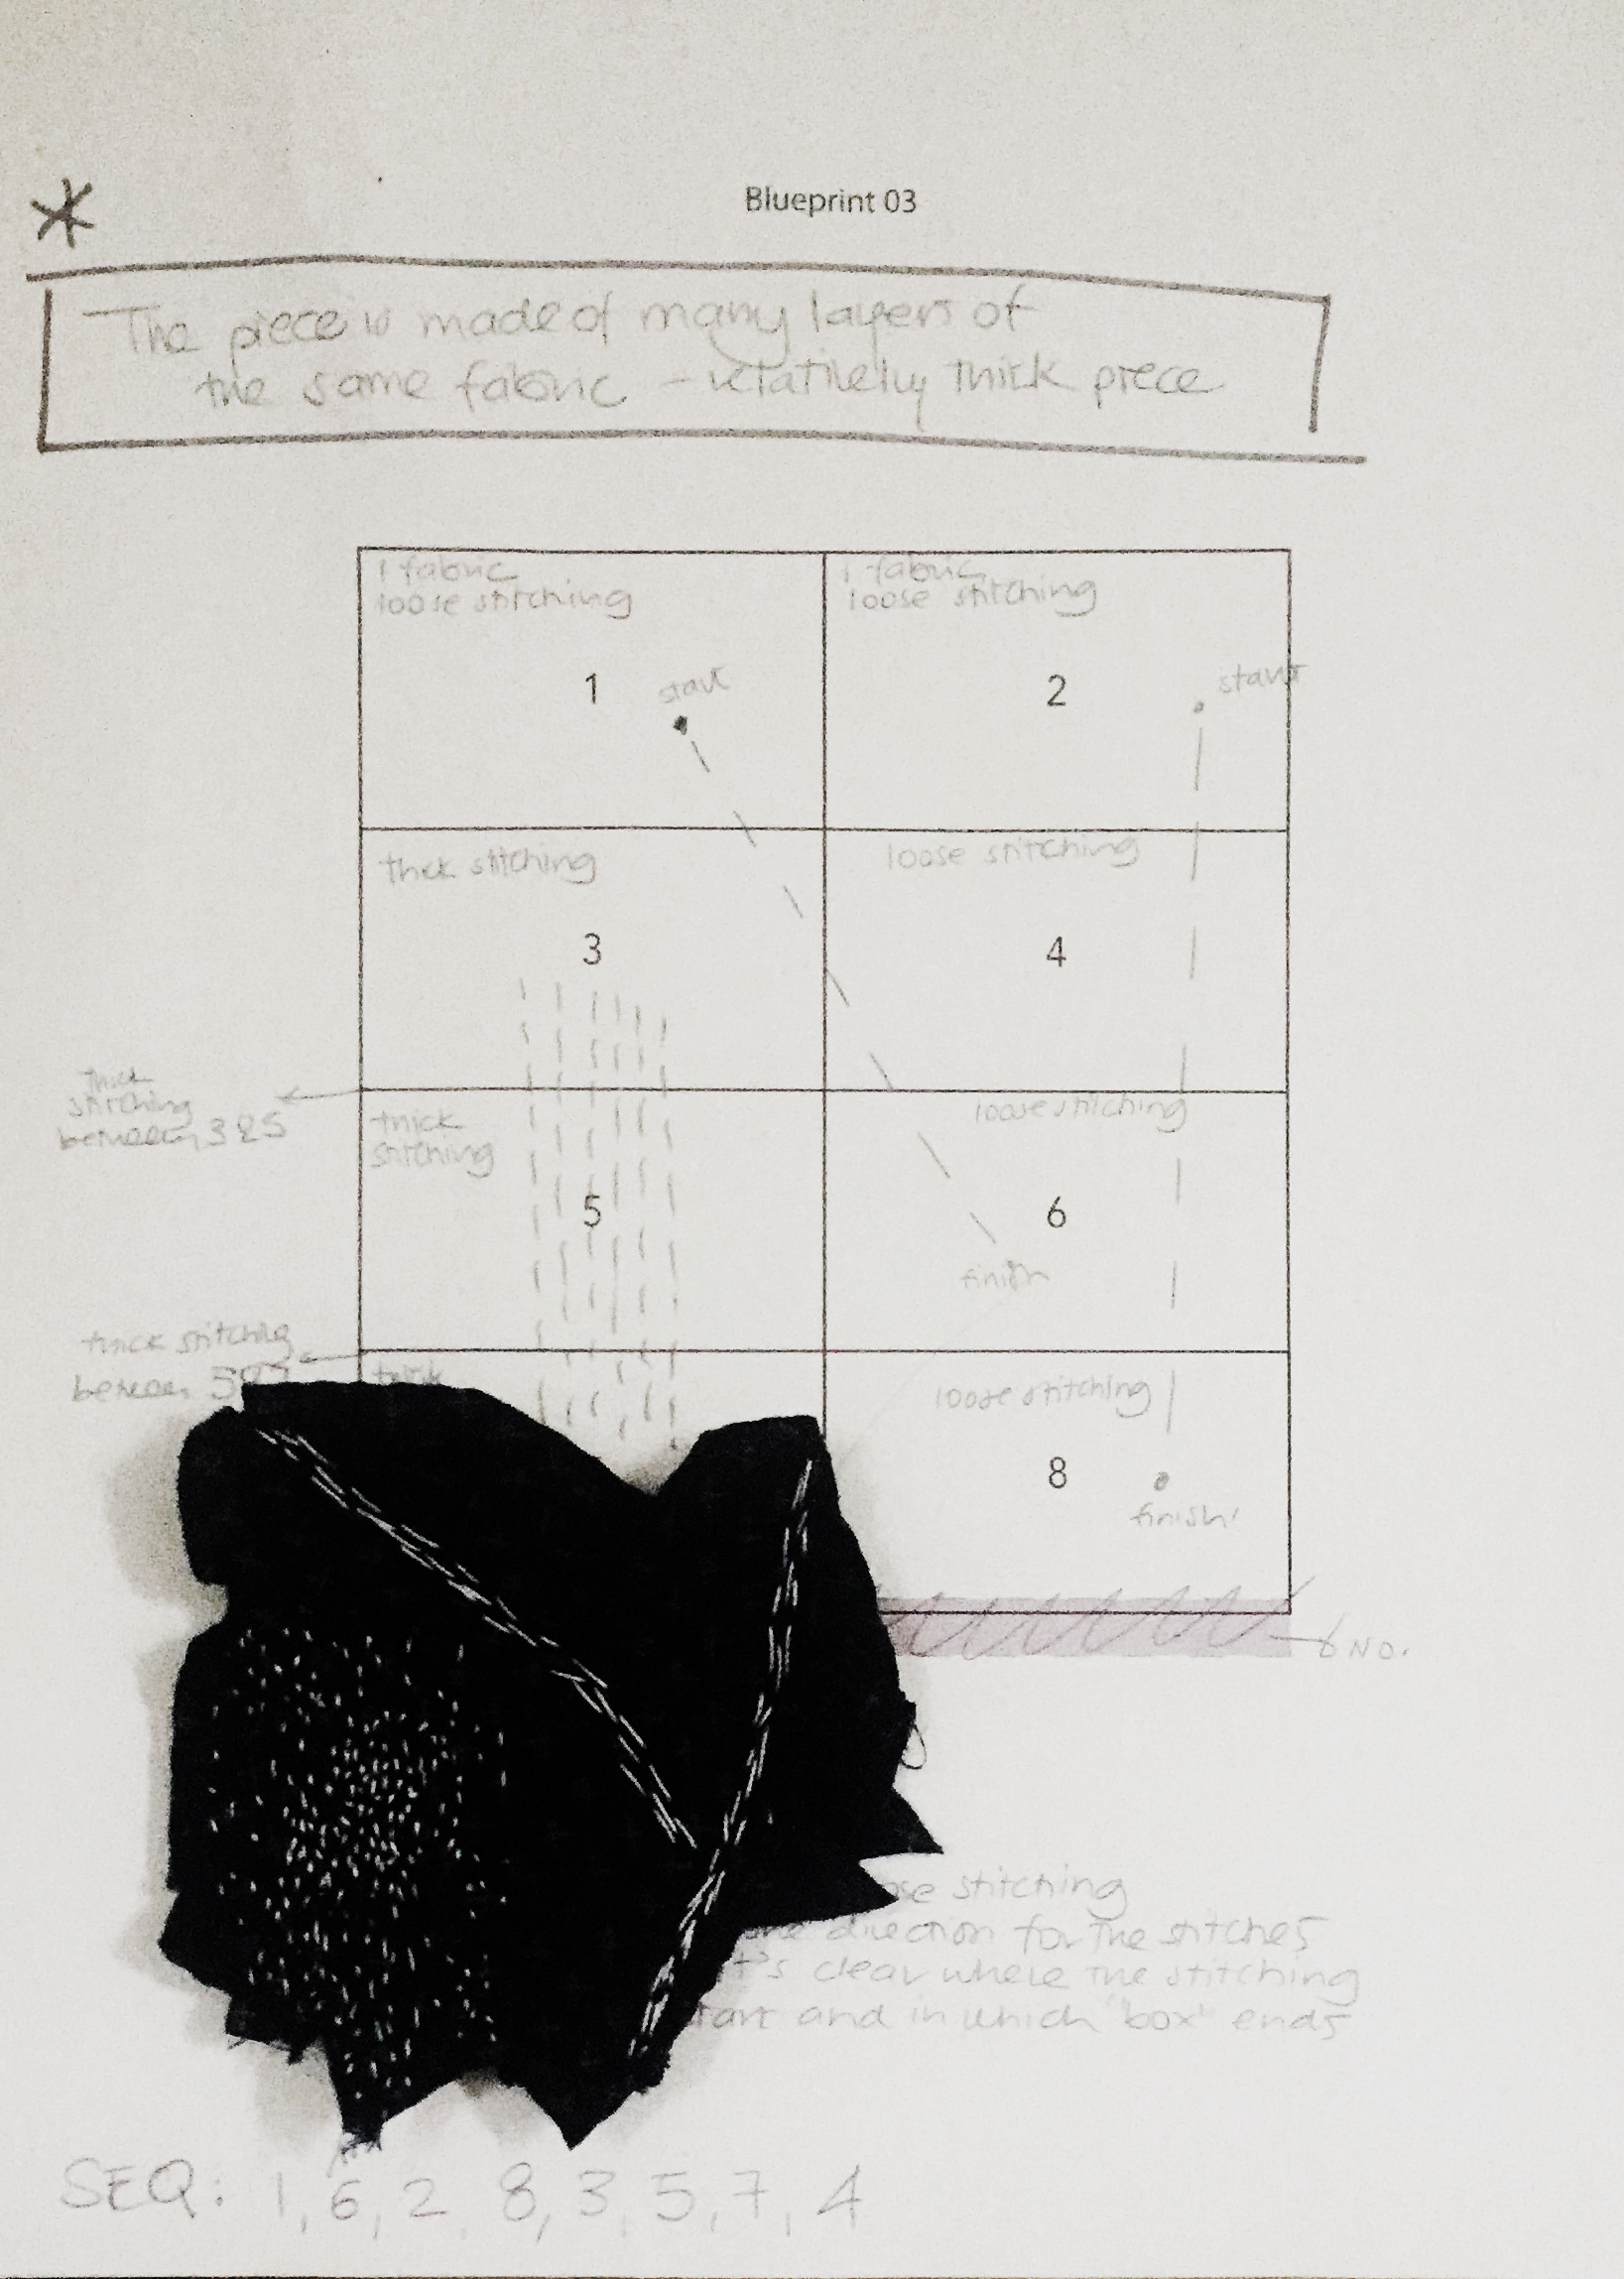 Blueprint 03
The piece is made of many layers of
the same fabric - relatively thick piece
1 fabric
loose stitching
1
start
1 fabric
loose stitching
2
start
thick stitching
3
loose stitching
4
thick
stitching
between 3&5
thick
stitching
5
loose stitching
6
finish
thick stitching
between 5&7
thick
loose stitching
8
finish
NO.
stitching
direction for the stitches
clear where the stitching
and in which "box" ends
SEQ: 1, 6, 2, 8, 3, 5, 7, 4